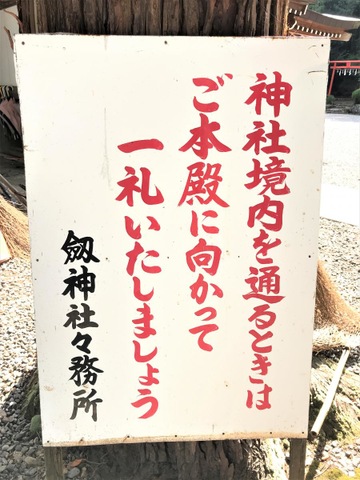 神社境内を通るときは
ご本殿に向かって
一礼いたしましょう
劔神社々務所